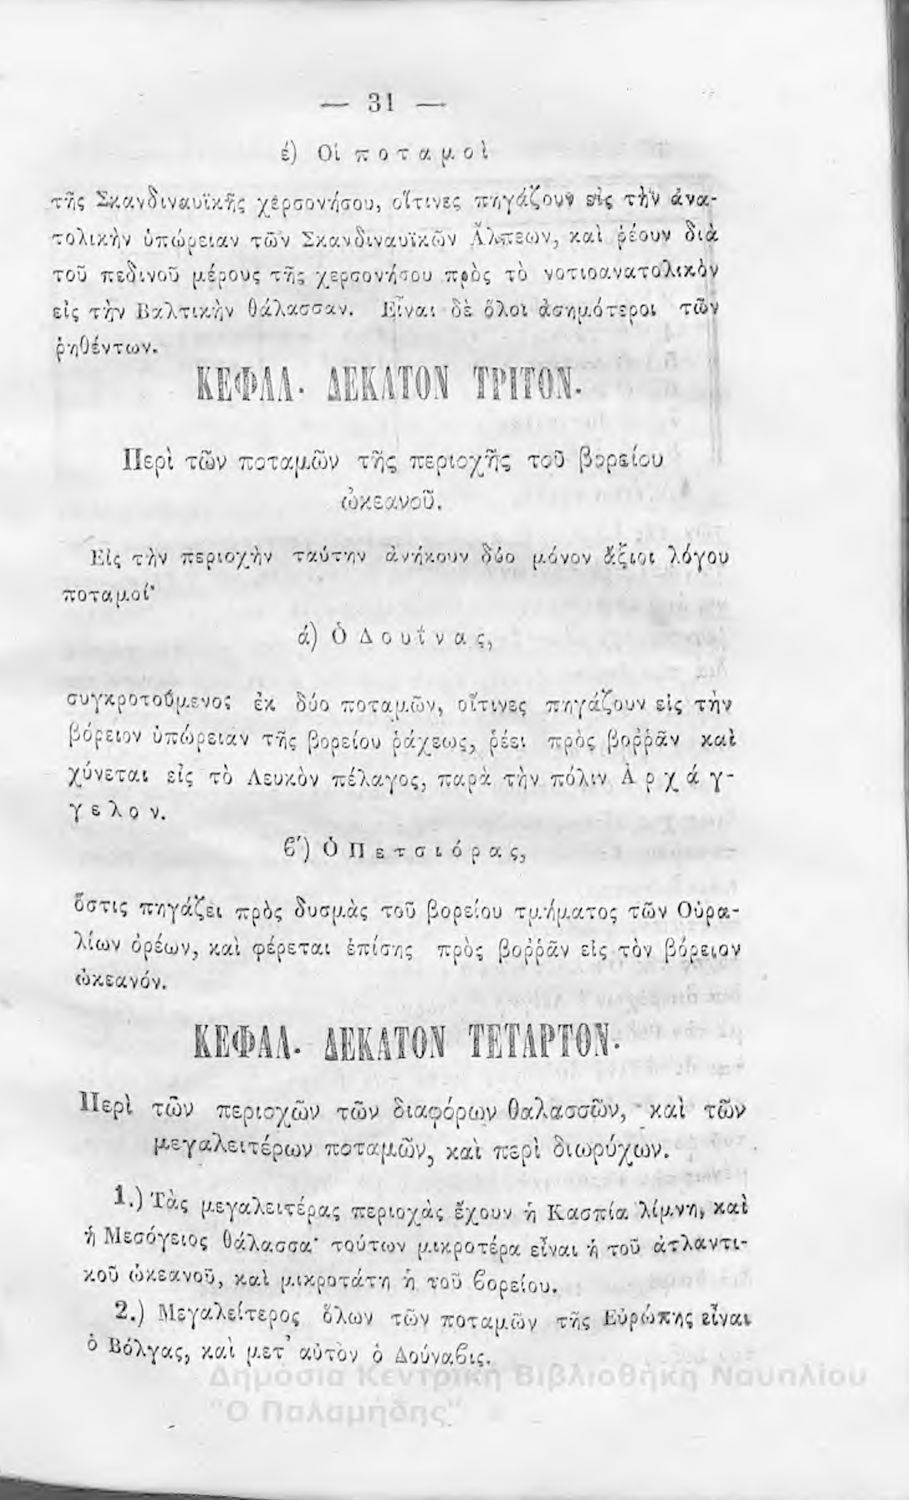 — 31 —
έ) Οἱ ποταμοὶ
τῆς Σκανδιναυϊκῆς χερσονήσου, οἵτινες πηγάζουν εἰς τὴν ἀνα-
τολικὴν ὑπώρειαν τῶν Σκανδιναυϊκῶν Ἄλπεων, καὶ ῥέουν διὰ
τοῦ πεδινοῦ μέρους τῆς χερσονήσου πρὸς τὸ νοτιοανατολικὸν
εἰς τὴν Βαλτικὴν θάλασσαν. Εἶναι δὲ ὅλοι ἀσημότεροι τῶν
ῥηθέντων.
ΚΕΦΑΛ. ΔΕΚΑΤΟΝ ΤΡΙΤΟΝ.
Περὶ τῶν ποταμῶν τῆς περιοχῆς τοῦ βορείου
ὠκεανοῦ.
Εἰς τὴν περιοχὴν ταύτην ἀνήκουν δύο μόνον ἄξιοι λόγου
ποταμοί·
ά) Ὁ Δουΐνας,
συγκροτούμενος ἐκ δύο ποταμῶν, οἵτινες πηγάζουν εἰς τὴν
βόρειον ὑπώρειαν τῆς βορείου ῥάχεως, ῥέει πρὸς βοῤῥᾶν καὶ
χύνεται εἰς τὸ Λευκὸν πέλαγος, παρὰ τὴν πόλιν Ἀρχάγ-
γελον.
ϐ') Ὁ Πετσιόρας,
ὅστις πηγάζει πρὸς δυσμὰς τοῦ βορείου τμήματος τῶν Οὐρα-
λίων ὀρέων, καὶ φέρεται ἐπίσης πρὸς βοῤῥᾶν εἰς τὸν βόρειον
ὠκεανόν.
ΚΕΦΑΛ. ΔΕΚΑΤΟΝ ΤΕΤΑΡΤΟΝ.
Περὶ τῶν περιοχῶν τῶν διαφόρων θαλασσῶν, καὶ τῶν
μεγαλειτέρων ποταμῶν, καὶ περὶ διωρύχων.
1.) Τὰς μεγαλειτέρας περιοχὰς ἔχουν ἡ Κασπία λίμνη, καὶ
ἡ Μεσόγειος θάλασσα· τούτων μικροτέρα εἶναι ἡ τοῦ ἀτλαντι-
κοῦ ὠκεανοῦ, καὶ μικροτάτη ἡ τοῦ ϐορείου.
2.) Μεγαλείτερος ὅλων τῶν ποταμῶν τῆς Εὐρώπης εἶναι
ὁ Βόλγας, καὶ μετ' αὐτὸν ὁ Δούναϐις.
Δημόσια Κεντρική Βιβλιοθήκη Ναυπλίου
"Ο Παλαμήδης"